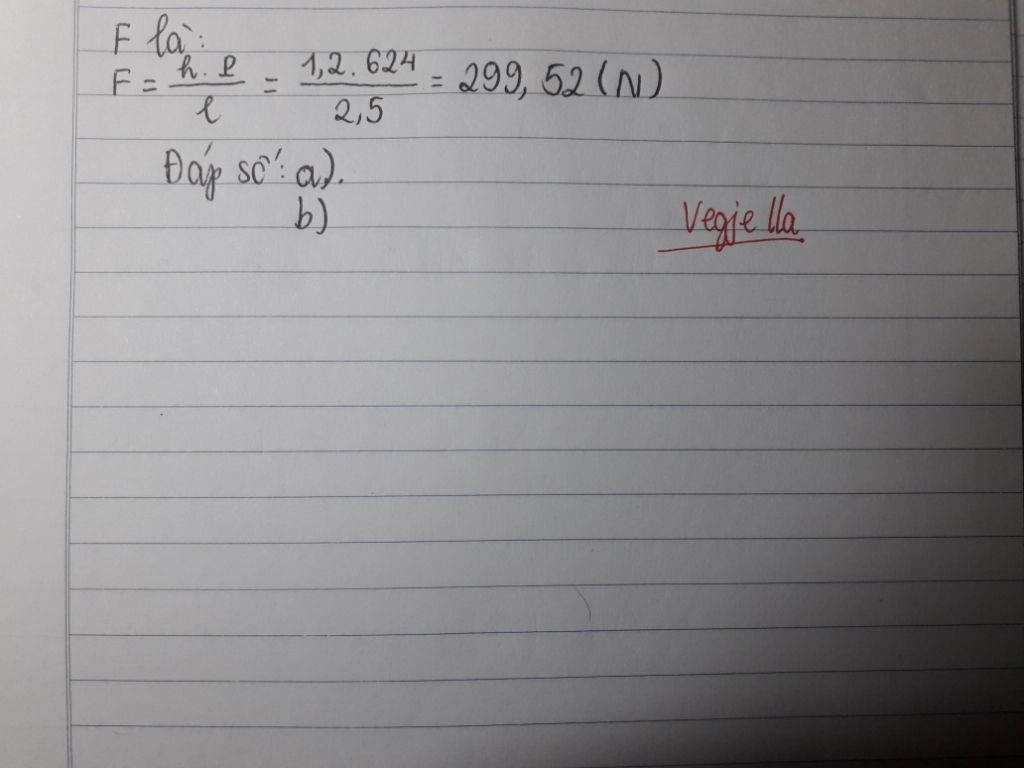 F là:
F = h.P / l = 1,2.624 / 2,5 = 299,52 (N)
Đáp số: a).
b)
Vegje lla